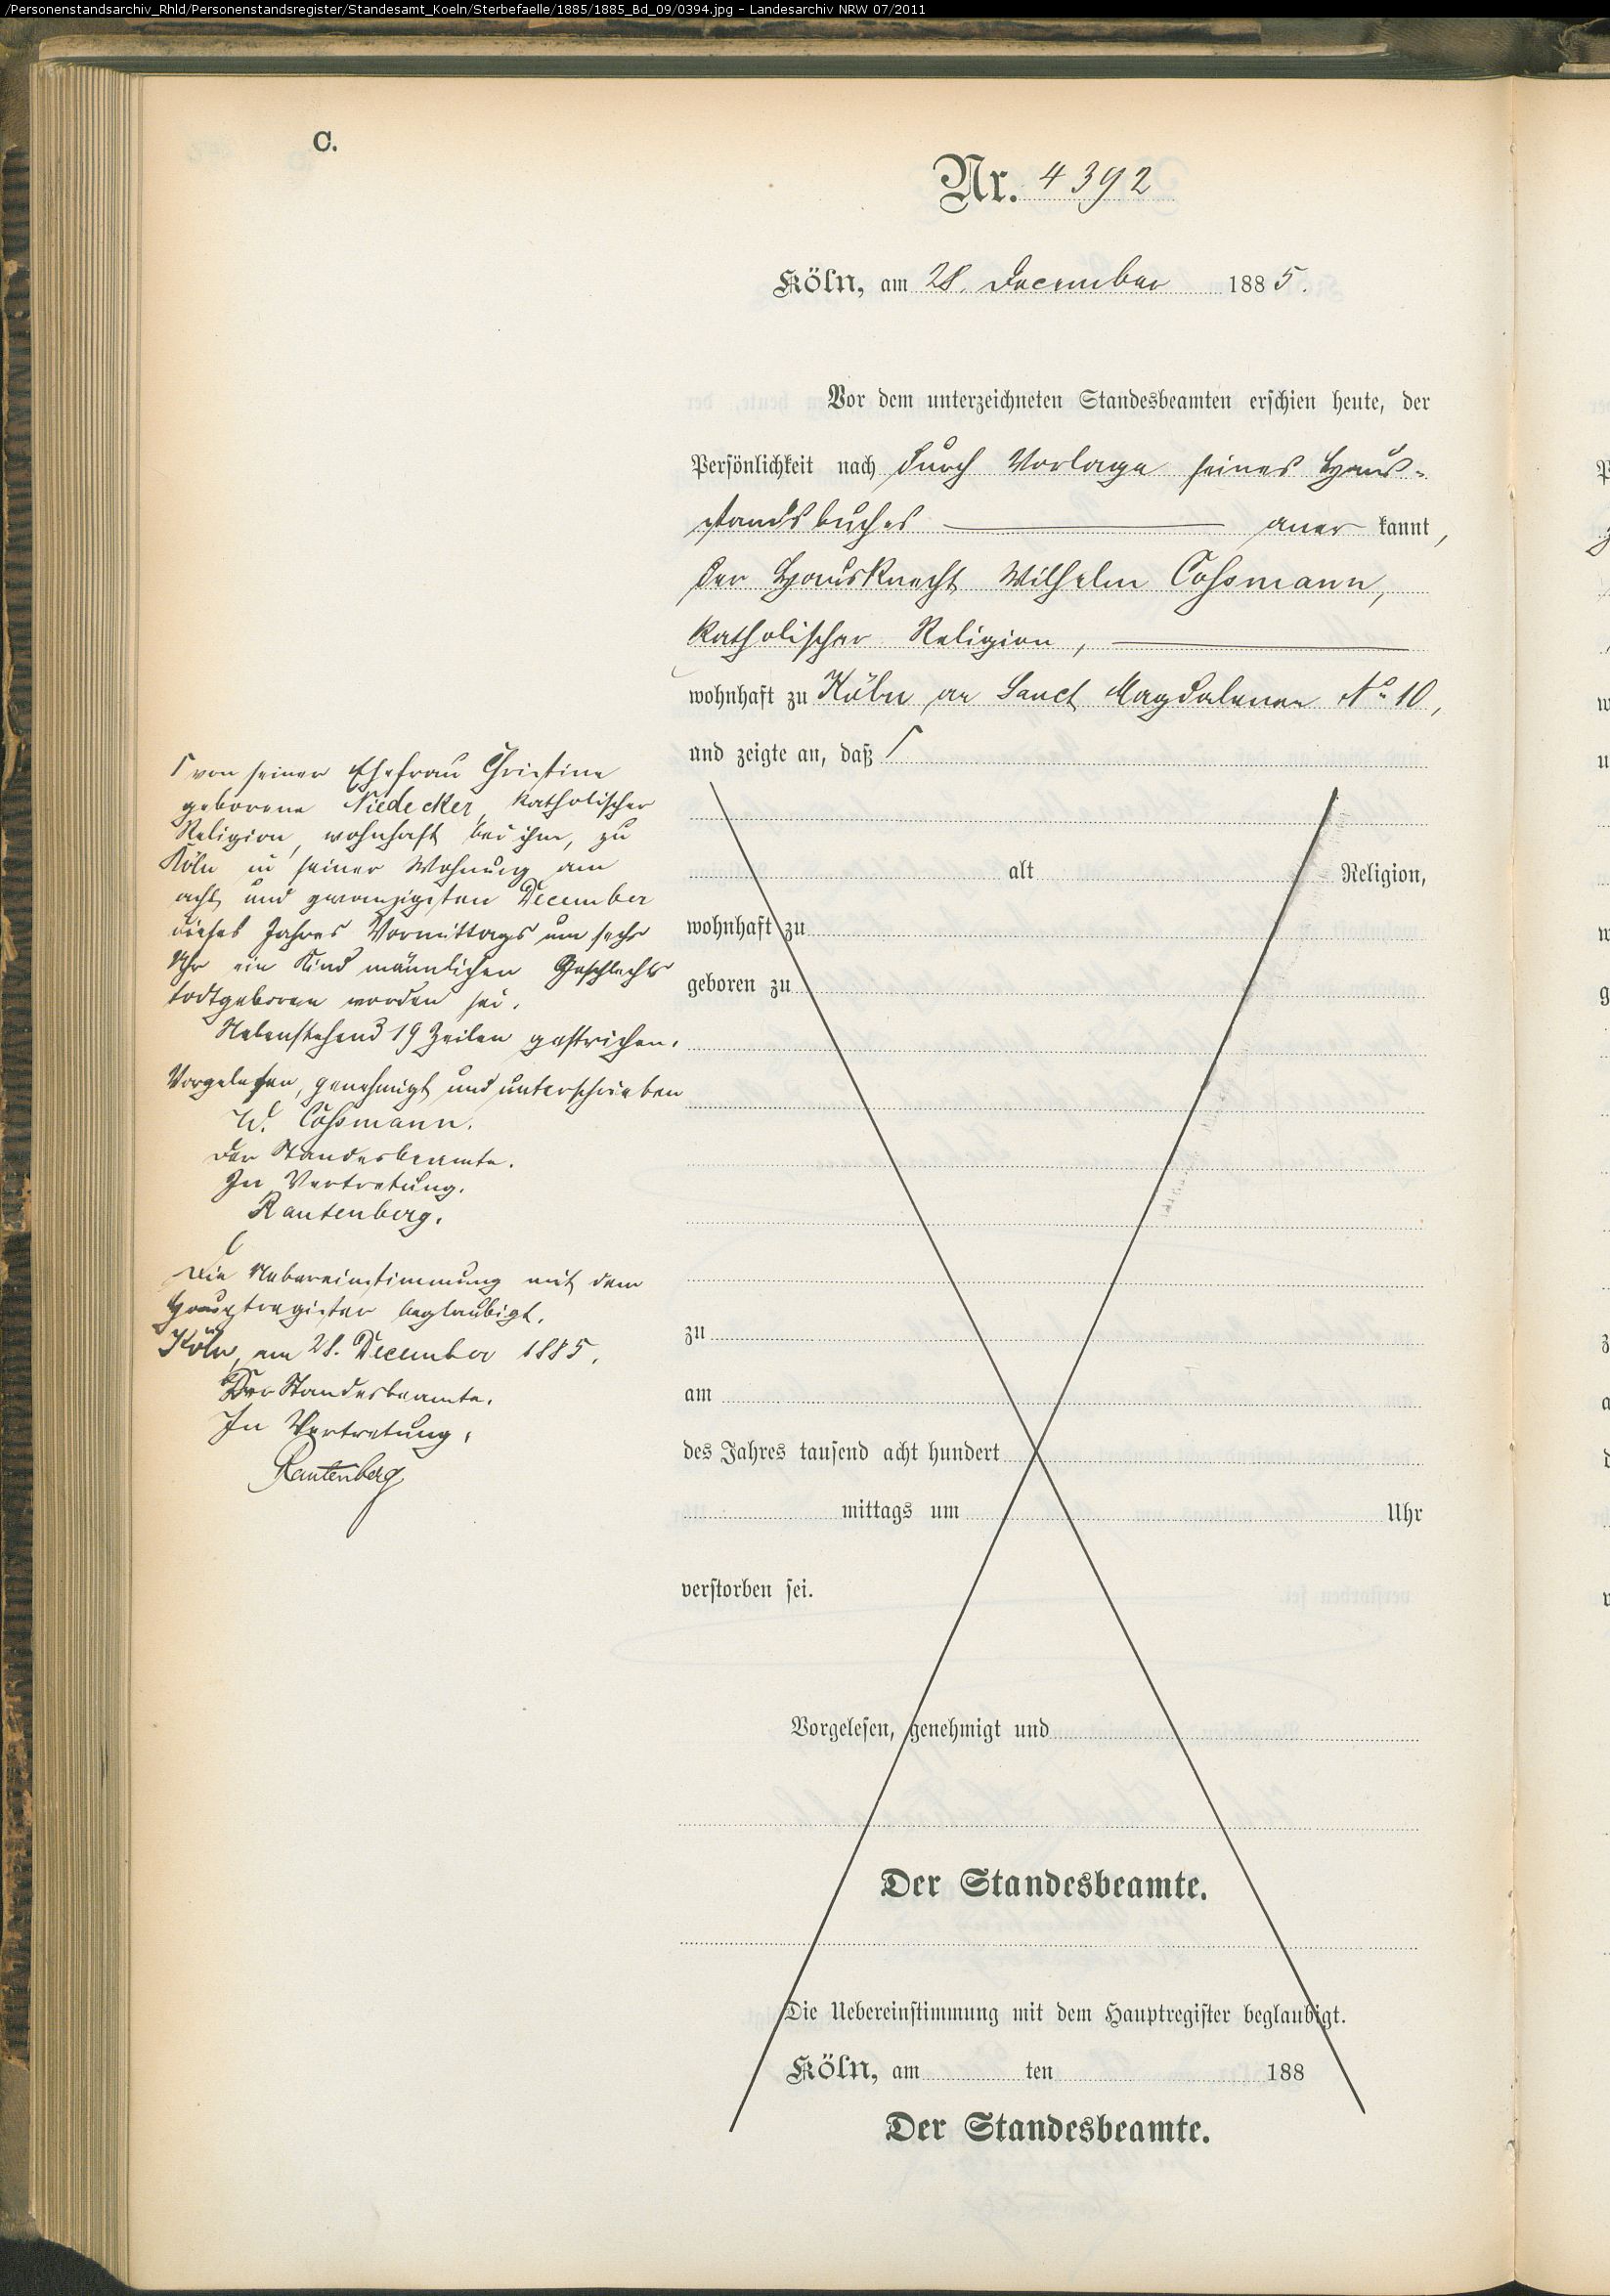 /Personenstandsarchiv_Rhld/Personenstandsregister/Standesamt_Koeln/Sterbefaelle/1885/1885_Bd_09/0394.jpg - Landesarchiv NRW 07/2011
C.
Nr. 4392
Köln, am 28. December 1885.
Vor dem unterzeichneten Standesbeamten erschien heute, der
Persönlichkeit nach durch Vorlage seines Haus-
standsbuches aner kannt,
der Hausknecht Wilhelm Coßmann,
katholischer Religion,
wohnhaft zu Köln an Sanct Magdalenen No 10,
und zeigte an, daß
von seiner Ehefrau Christine
geborene Niedecker, katholischer
Religion, wohnhaft bei ihm, zu
Köln in seiner Wohnung am
acht und zwanzigsten December
dieses Jahres Vormittags um sechs
Uhr ein Kind männlichen Geschlechts
todtgeboren worden sei.
Nebenstehend 19 Zeilen gestrichen.
Vorgelesen, genehmigt und unterschrieben
W. Coßmann.
Der Standesbeamte.
In Vertretung.
Rautenberg.
Die Uebereinstimmung mit dem
Hauptregister beglaubigt.
Köln, am 28. December 1885.
Der Standesbeamte.
In Vertretung.
Rautenberg
alt Religion,
wohnhaft zu
geboren zu
zu
am
des Jahres tausend acht hundert
mittags um Uhr
verstorben sei.
Vorgelesen, genehmigt und
Der Standesbeamte.
Die Uebereinstimmung mit dem Hauptregister beglaubigt.
Köln, am ten 188
Der Standesbeamte.